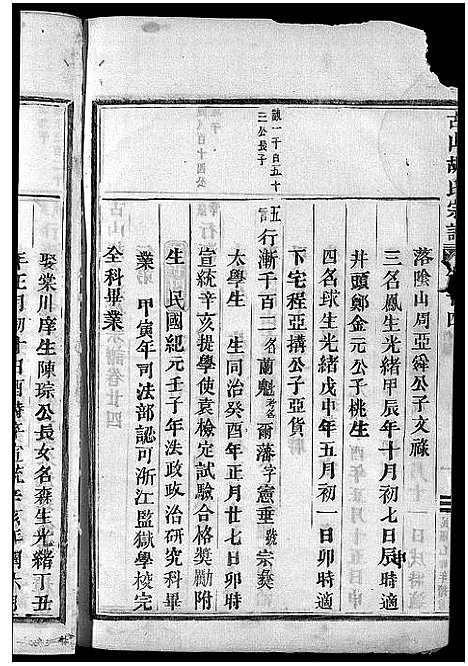 古山胡氏宗譜
落塗山周亞舜公子文祿
三名鳳生光緒甲辰年十月初七日辰時適
井頭鄭金元公子桃生
四名球生光緒戊申年五月初一日卯時適
下宅程亞撛公子亞貨
誠一千百五十
三公長子
五言
行漸千百二名蘭魁爾藩字憲垂號宗彜
太學生 生同治癸酉年正月廿七日卯時
宣統辛亥提學使袁檢定試驗合格奬勵附
生民國紀元壬子年法政政治研究科畢
業 甲寅年司法部認可浙江監獄學校完
全科畢業
娶棠川庠生陳琮公長女名森生光緒丁丑
年正月初十日酉時卒宣統辛亥年閏六月